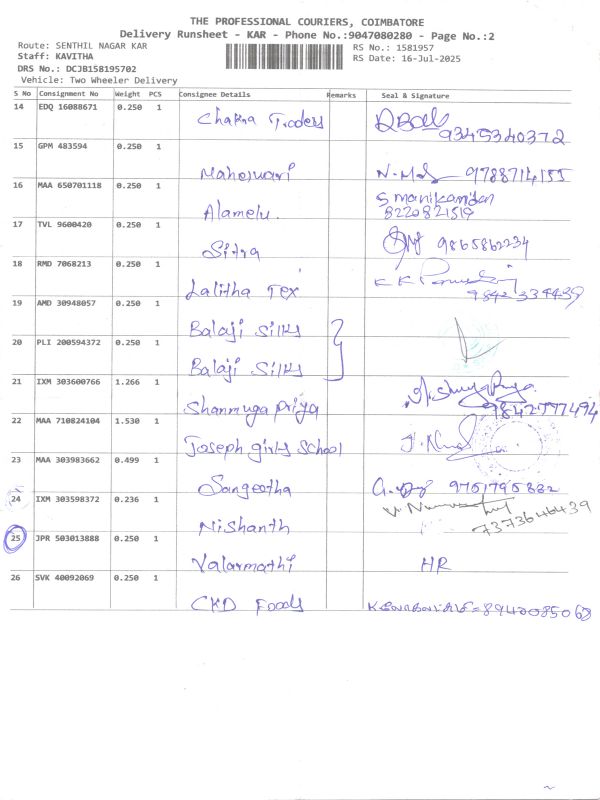 THE PROFESSIONAL COURIERS, COIMBATORE
Delivery Runsheet - KAR - Phone No.:9047080280 - Page No.:2
Route: SENTHIL NAGAR KAR
RS No.: 1581957
Staff: KAVITHA
RS Date: 16-Jul-2025
DRS No.: DCJB158195702
Vehicle: Two Wheeler Delivery
S No Consignment No Weight PCS Consignee Details Remarks Seal & Signature
14 EDQ 16088671 0.250 1
Chakra Traders 9345340372
15 GPM 483594 0.250 1
Maheswari 9788714155
16 MAA 650701118 0.250 1
S manikandan
Alamelu. 8220821519
17 TVL 9600420 0.250 1
Sitra 9865862234
18 RMD 7068213 0.250 1
Lalitha Tex 9842334439
19 AMD 30948057 0.250 1
Balaji Silks
20 PLI 200594372 0.250 1
Balaji Silks
21 IXM 303600766 1.266 1
Shanmuga priya 9842577494
22 MAA 710824104 1.530 1
Joseph girls School
23 MAA 303983662 0.499 1
Sangeetha 9751795882
24 IXM 303598372 0.236 1
Nishanth 7373646439
25 JPR 503013888 0.250 1
Valarmathi HR
26 SVK 40092069 0.250 1
CKD Foods 8942085068